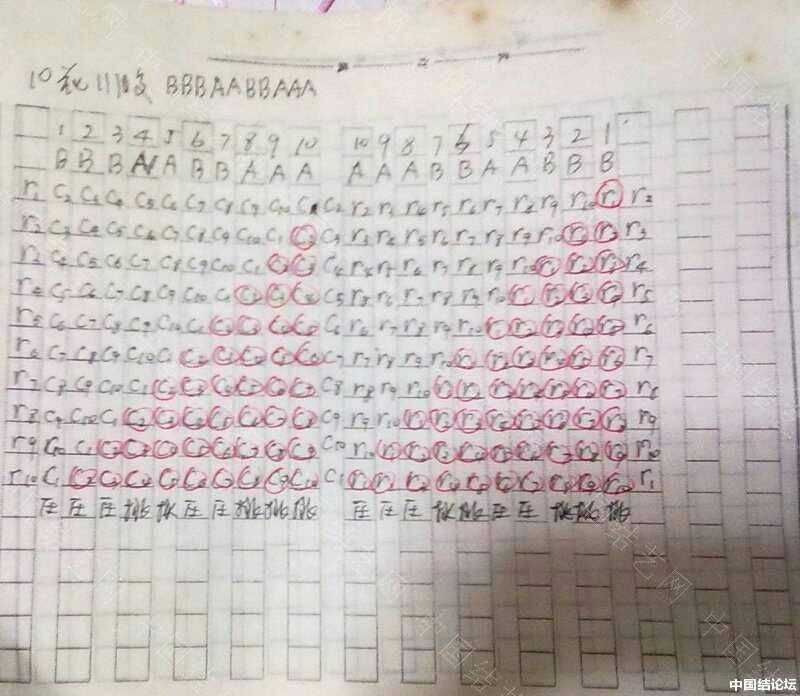 10 BBBAABBAAA
1 2 3 4 5 6 7 8 9 10 10 9 8 7 6 5 4 3 2 1
B B B A A B B A A A A A A B B A A B B B
r1 C2 C3 C4 C5 C6 C7 C8 C9 C10 C1 C2 r2 r3 r4 r5 r6 r7 r8 r9 r10 r1 r2
r2 C3 C4 C5 C6 C7 C8 C9 C10 C1 C2 C3 r3 r4 r5 r6 r7 r8 r9 r10 r1 r2 r3
r3 C4 C5 C6 C7 C8 C9 C10 C1 C2 C3 C4 r4 r5 r6 r7 r8 r9 r10 r1 r2 r3 r4
r4 C5 C6 C7 C8 C9 C10 C1 C2 C3 C4 C5 r5 r6 r7 r8 r9 r10 r1 r2 r3 r4 r5
r5 C6 C7 C8 C9 C10 C1 C2 C3 C4 C5 C6 r6 r7 r8 r9 r10 r1 r2 r3 r4 r5 r6
r6 C7 C8 C9 C10 C1 C2 C3 C4 C5 C6 C7 r7 r8 r9 r10 r1 r2 r3 r4 r5 r6 r7
r7 C8 C9 C10 C1 C2 C3 C4 C5 C6 C7 C8 r8 r9 r10 r1 r2 r3 r4 r5 r6 r7 r8
r8 C9 C10 C1 C2 C3 C4 C5 C6 C7 C8 C9 r9 r10 r1 r2 r3 r4 r5 r6 r7 r8 r9
r9 C10 C1 C2 C3 C4 C5 C6 C7 C8 C9 C10 r10 r1 r2 r3 r4 r5 r6 r7 r8 r9 r10
r10 C1 C2 C3 C4 C5 C6 C7 C8 C9 C10 C1 r1 r2 r3 r4 r5 r6 r7 r8 r9 r10 r1
压 压 压 挑 挑 压 压 挑 挑 挑 压 压 压 挑 挑 压 压 挑 挑 挑
中国结艺网
中国结论坛